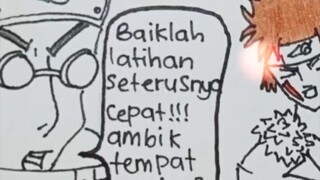 Baiklah
latihan
seterusnya
cepat!!!
ambik
tempat